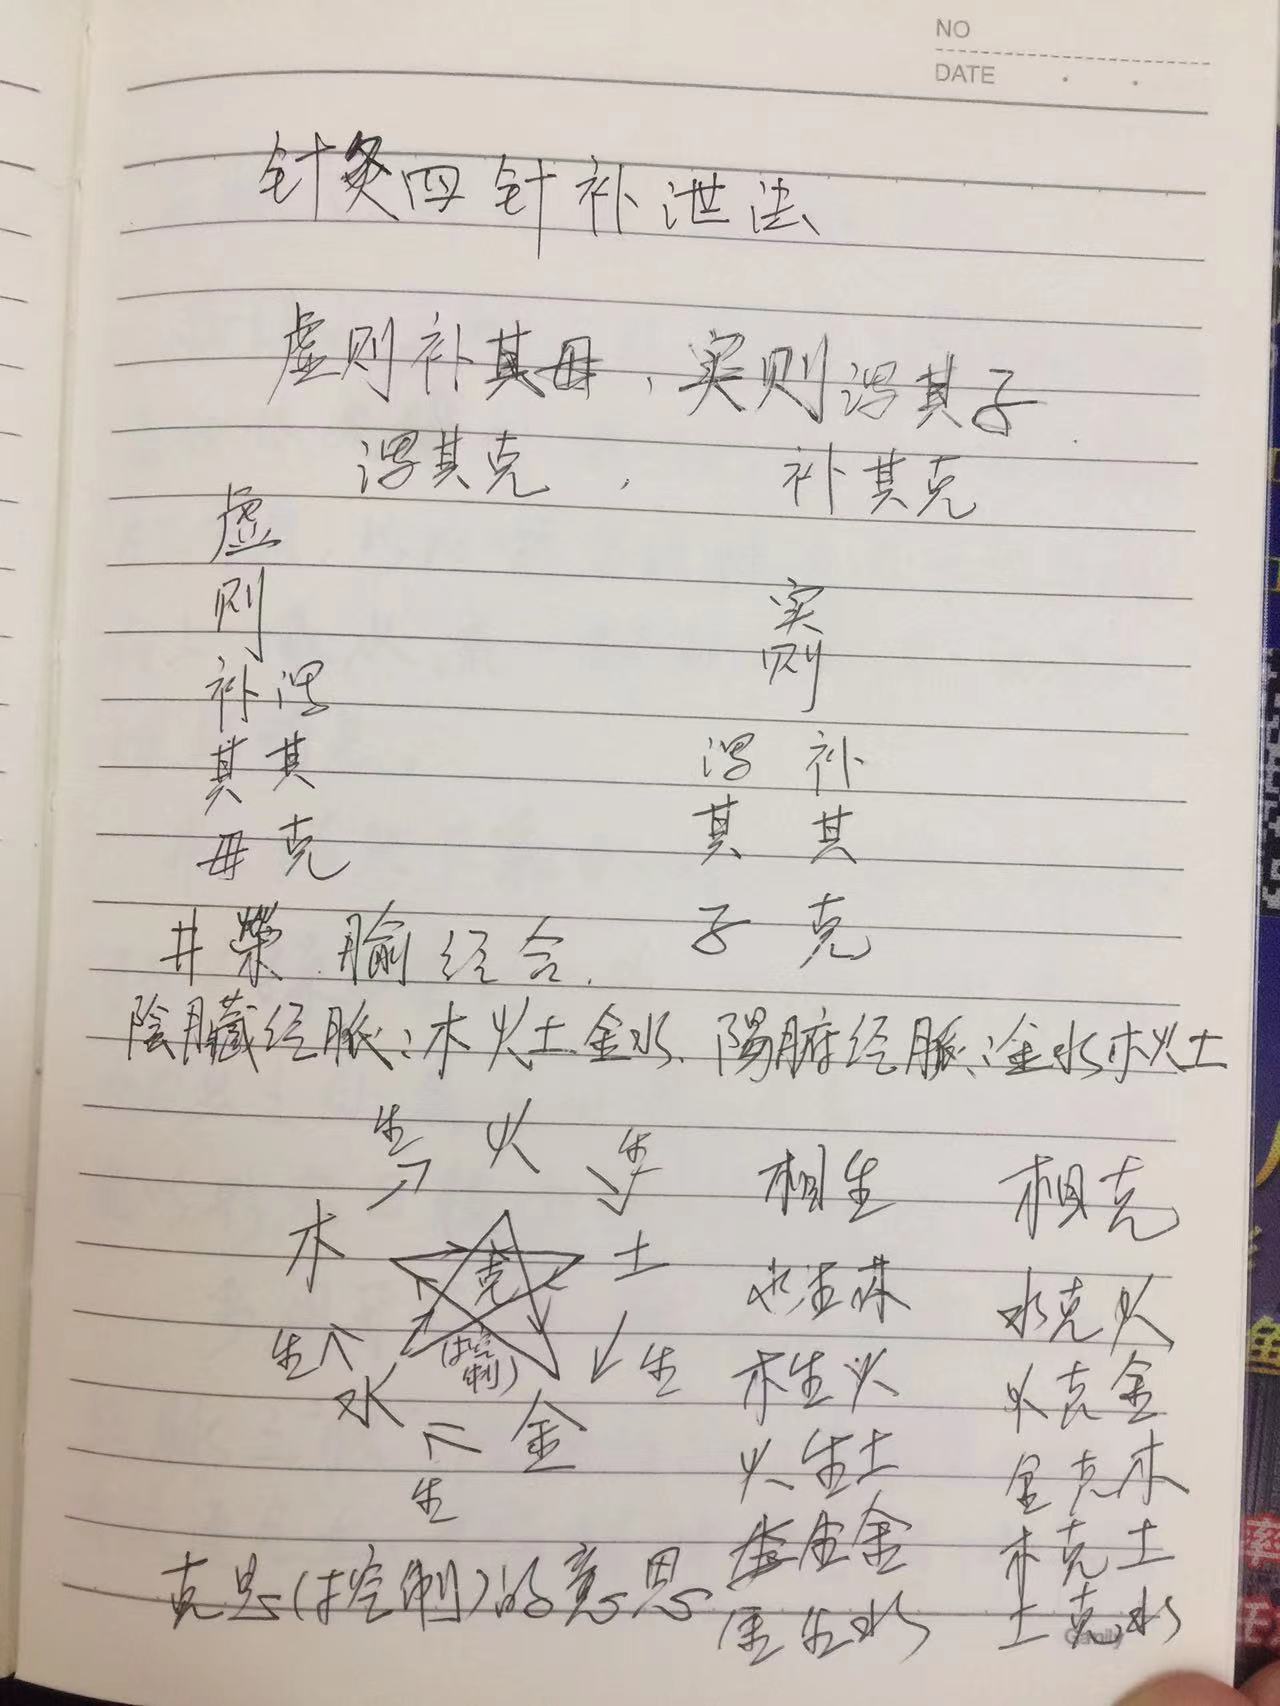 NO
DATE
针灸四针补泄法
虚则补其母，实则泻其子
泻其克，补其克
虚则
补其母
泻其克
实则
泻其子
补其克
井荣腧经合.
陰臟经脈:木火土金水.陽腑经脈:金水木火土
生 火 生
木 克 土
(控制)
生 水 金 生
生
相生 相克
水生木 水克火
木生火 火克金
火生土 金克木
土生金 木克土
金生水 土克水
克是(控制)的意思
Gamily